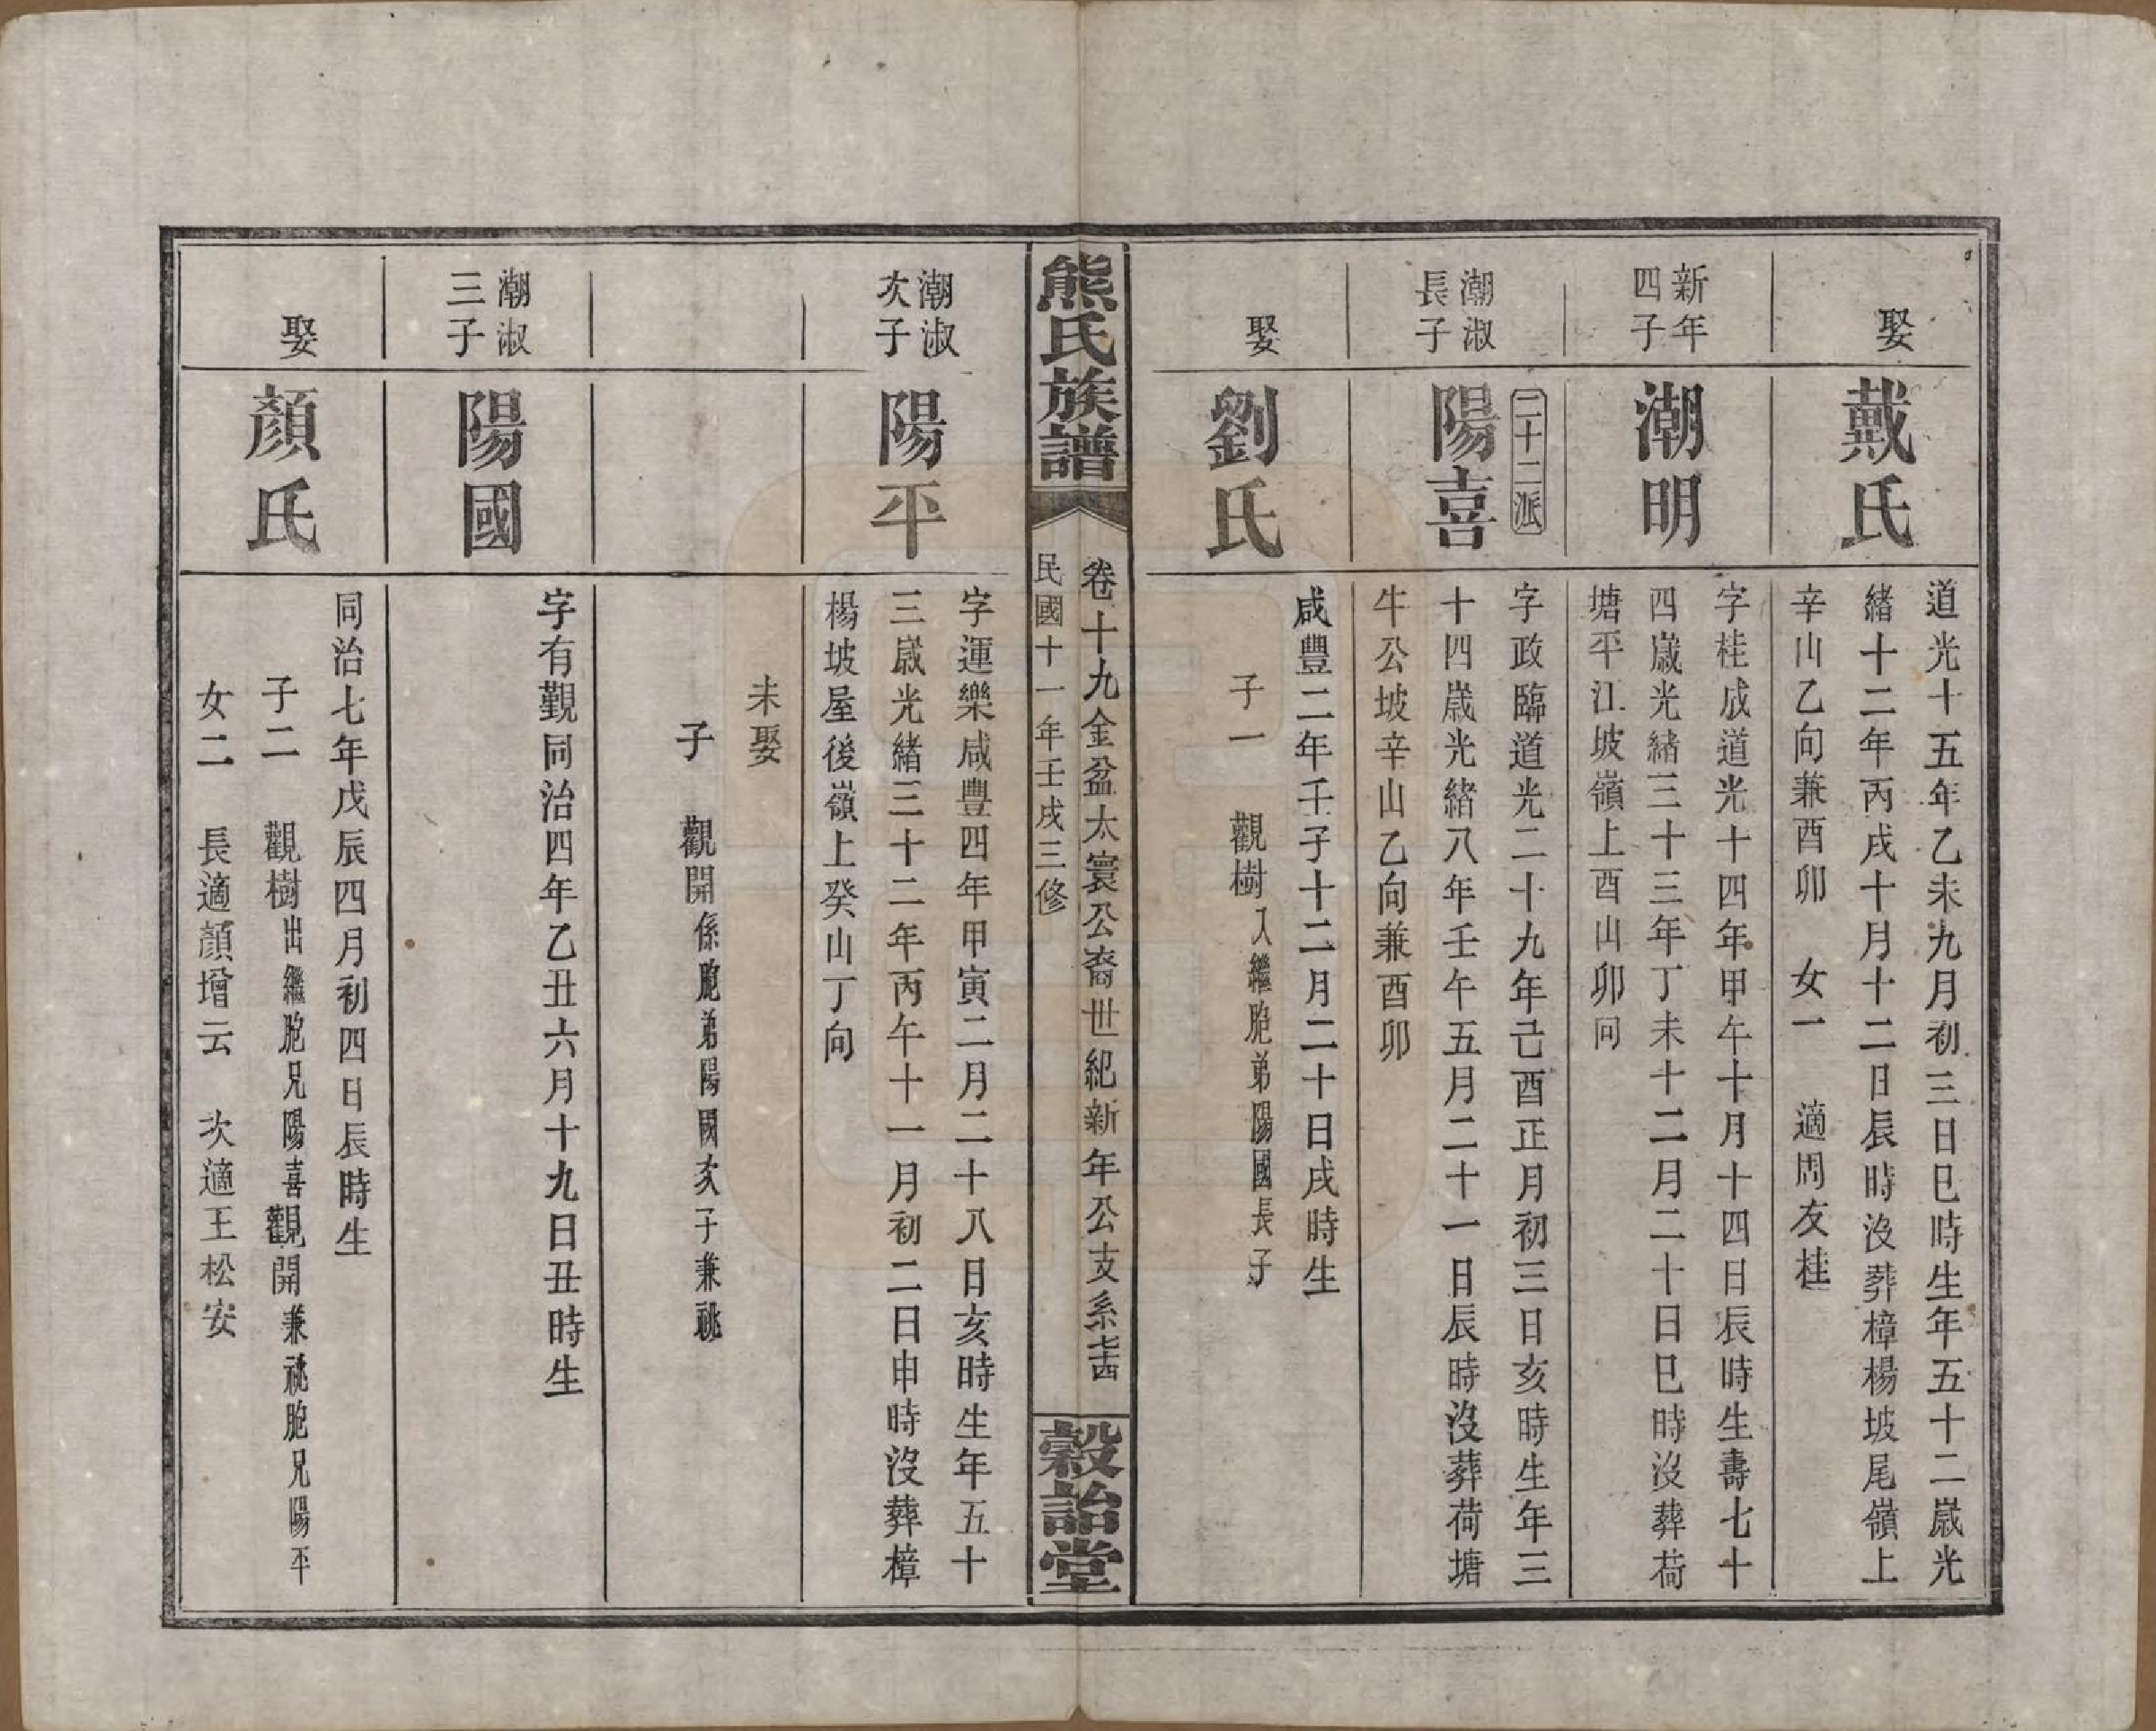 娶
戴氏
道光十五年乙未九月初三日巳時生年五十二歲光
緒十二年丙戌十月十二日辰時沒葬樟楊坡尾嶺上
辛山乙向兼酉卯　女一　適周友桂
新年
四子
潮明
字桂成道光十四年甲午十月十四日辰時生壽七十
四歲光緒三十三年丁未十二月二十日巳時沒葬荷
塘平江坡嶺上酉山卯向
二十二派
潮淑
長子
陽喜
字政臨道光二十九年己酉正月初三日亥時生年三
十四歲光緒八年壬午五月二十一日辰時沒葬荷塘
牛公坡辛山乙向兼酉卯
娶
劉氏
咸豐二年壬子十二月二十日戌時生
子一　觀樹入繼胞弟陽國長子
熊氏族譜
卷十九金盆太寰公裔世紀新年公支系七十四
民國十一年壬戌三修
穀詒堂
潮淑
次子
陽平
字運樂咸豐四年甲寅二月二十八日亥時生年五十
三歲光緒三十二年丙午十一月初二日申時沒葬樟
楊坡屋後嶺上癸山丁向
未娶
子　觀開係胞弟陽國次子兼祧
潮淑
三子
陽國
字有觀同治四年乙丑六月十九日丑時生
娶
顏氏
同治七年戊辰四月初四日辰時生
子二　觀樹出繼胞兄陽喜觀開兼祧胞兄陽平
女二　長適顏增云　次適王松安